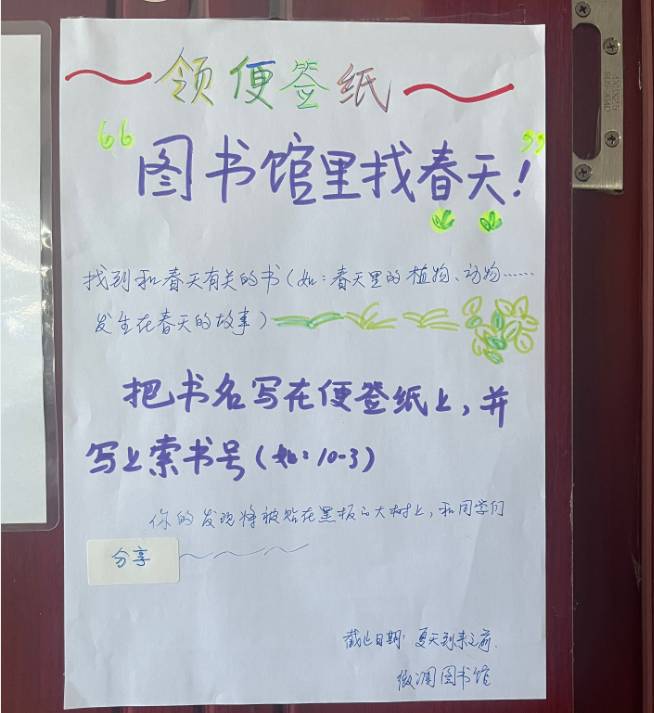 领便签纸
“图书馆里找春天!”
找到和春天有关的书(如:春天里的植物、动物……
发生在春天的故事)
把书名写在便签纸上,并
写上索书号(如:10-3)
你的发现将被贴在黑板的大树上,和同学们
分享
截止日期:夏天到来之前.
图书馆